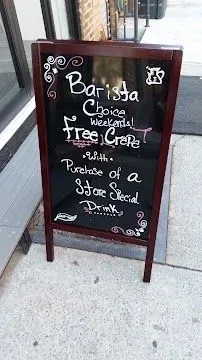 Barista
Choice
weekends!
Free Crepe
with
Purchase of a
Store Special
Drink